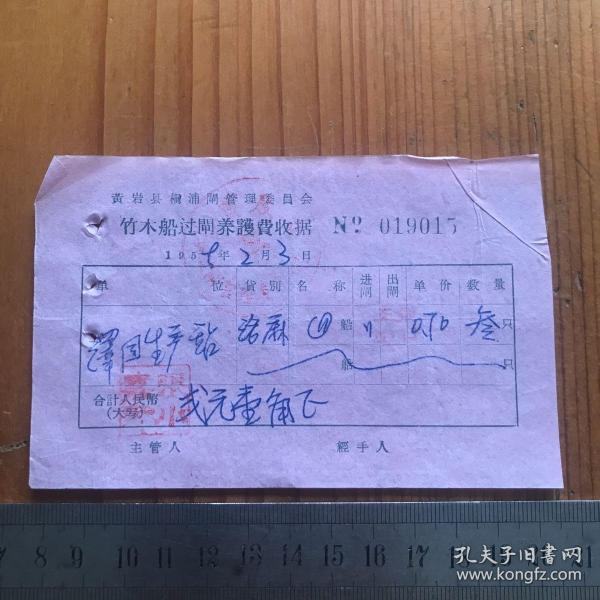 黃岩县椒浦閘管理委員会
竹木船过閘养護費收据 № 019015
195七年2月3日
单位 貨別 名称 进閘 出閘 单价 数量
澤国生产站 络麻 船 11 0.70 叁只
船 只
合計人民幣(大写) 弍元壹角正
主管人 經手人
7 8 9 10 11 12 13 14 15 16 17 18 19 20 21
孔夫子旧書网
www.kongfz.com